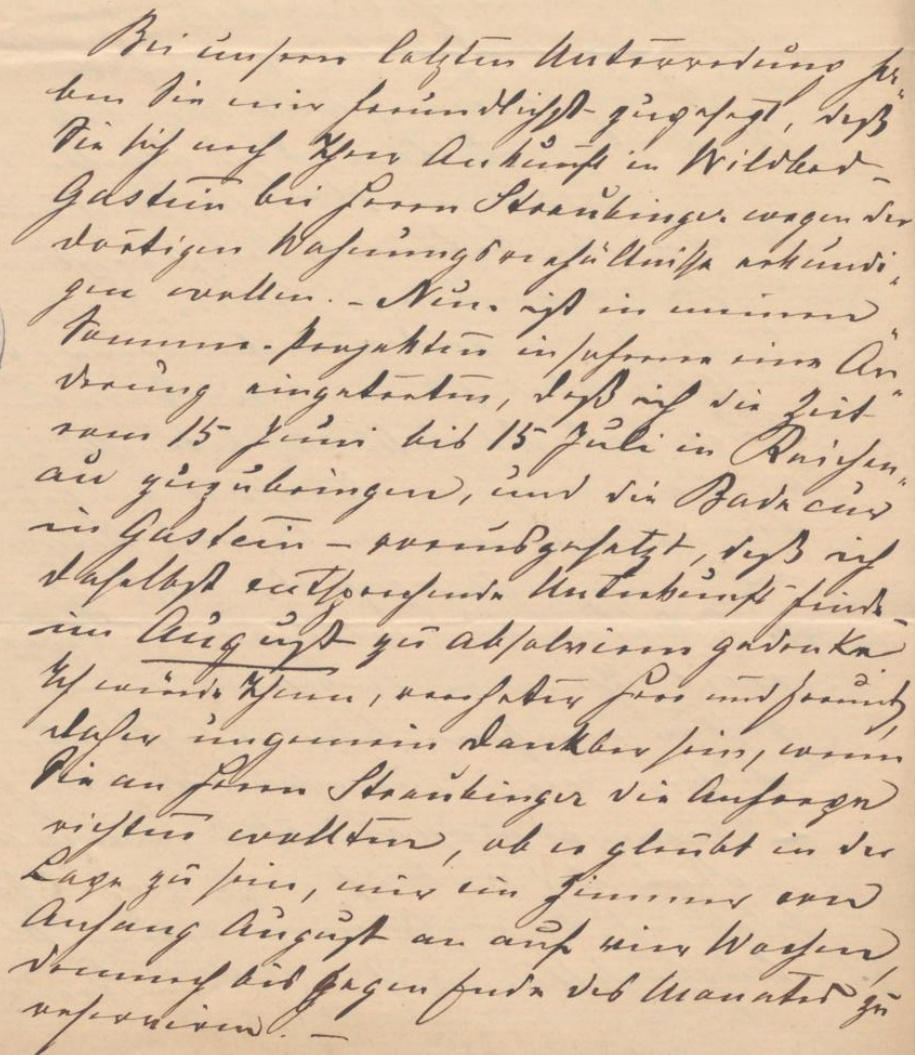 Bei unserer letzten Unterredung ha-
ben Sie mir freundlichst zugesagt, daß
Sie sich nach Ihrer Ankunft in Wildbad-
Gastein bei Herrn Straubinger wegen der
dortigen Wohnungsverhältnisse erkundi-
gen wollen. – Nun ist in meinen
Sommer-Projekten insoferne eine Än-
derung eingetreten, daß ich die Zeit
vom 15 Juni bis 15 Juli in Reichen-
au zuzubringen, und die Badecur
in Gastein – vorausgesetzt, daß ich
daselbst entsprechende Unterkunft finde –
im August zu absolviren gedenke.
Ich würde Ihnen, verehrter Herr und Freund,
daher ungemein dankbar sein, wenn
Sie an Herrn Straubinger die Anfrage
richten wollten, ob er glaubt in der
Lage zu sein, mir ein Zimmer von
Anfang August an auf vier Wochen,
demnach bis gegen Ende des Monates zu
reserviren. –